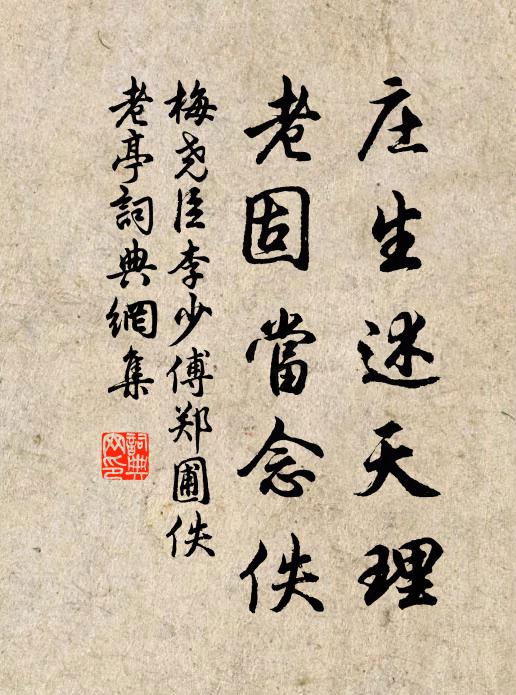 庄生述天理
老固當念佚
梅尧臣李少傅郑圃佚
老亭詞典網集
詞典网印